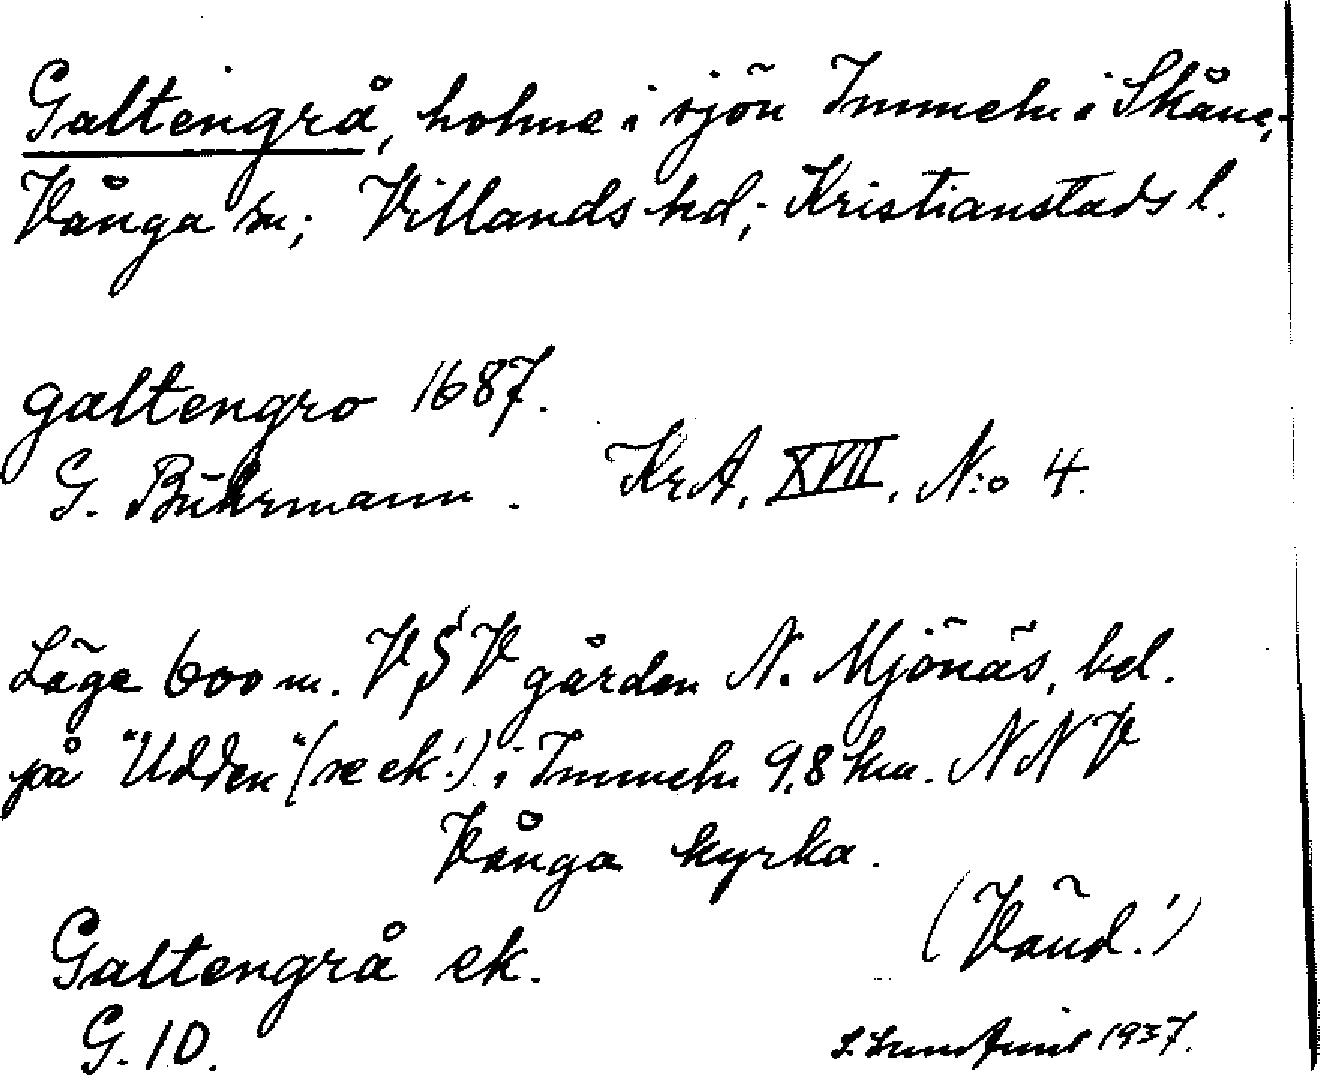 Galtengrå, holme i sjön Immeln i Skåne,
Vånga sn; Villands hd; Kristianstads l.
galtengro 1687.
G. Buhrmann. KrA, XVII, N:o 4.
Läge 600 m. VSV gården N. Mjönäs, bel.
på "Udden" (se ek!) i Immeln 9,8 km. NNV
Vånga kyrka.
(Vänd!)
Galtengrå ek.
G. 10.
1937.